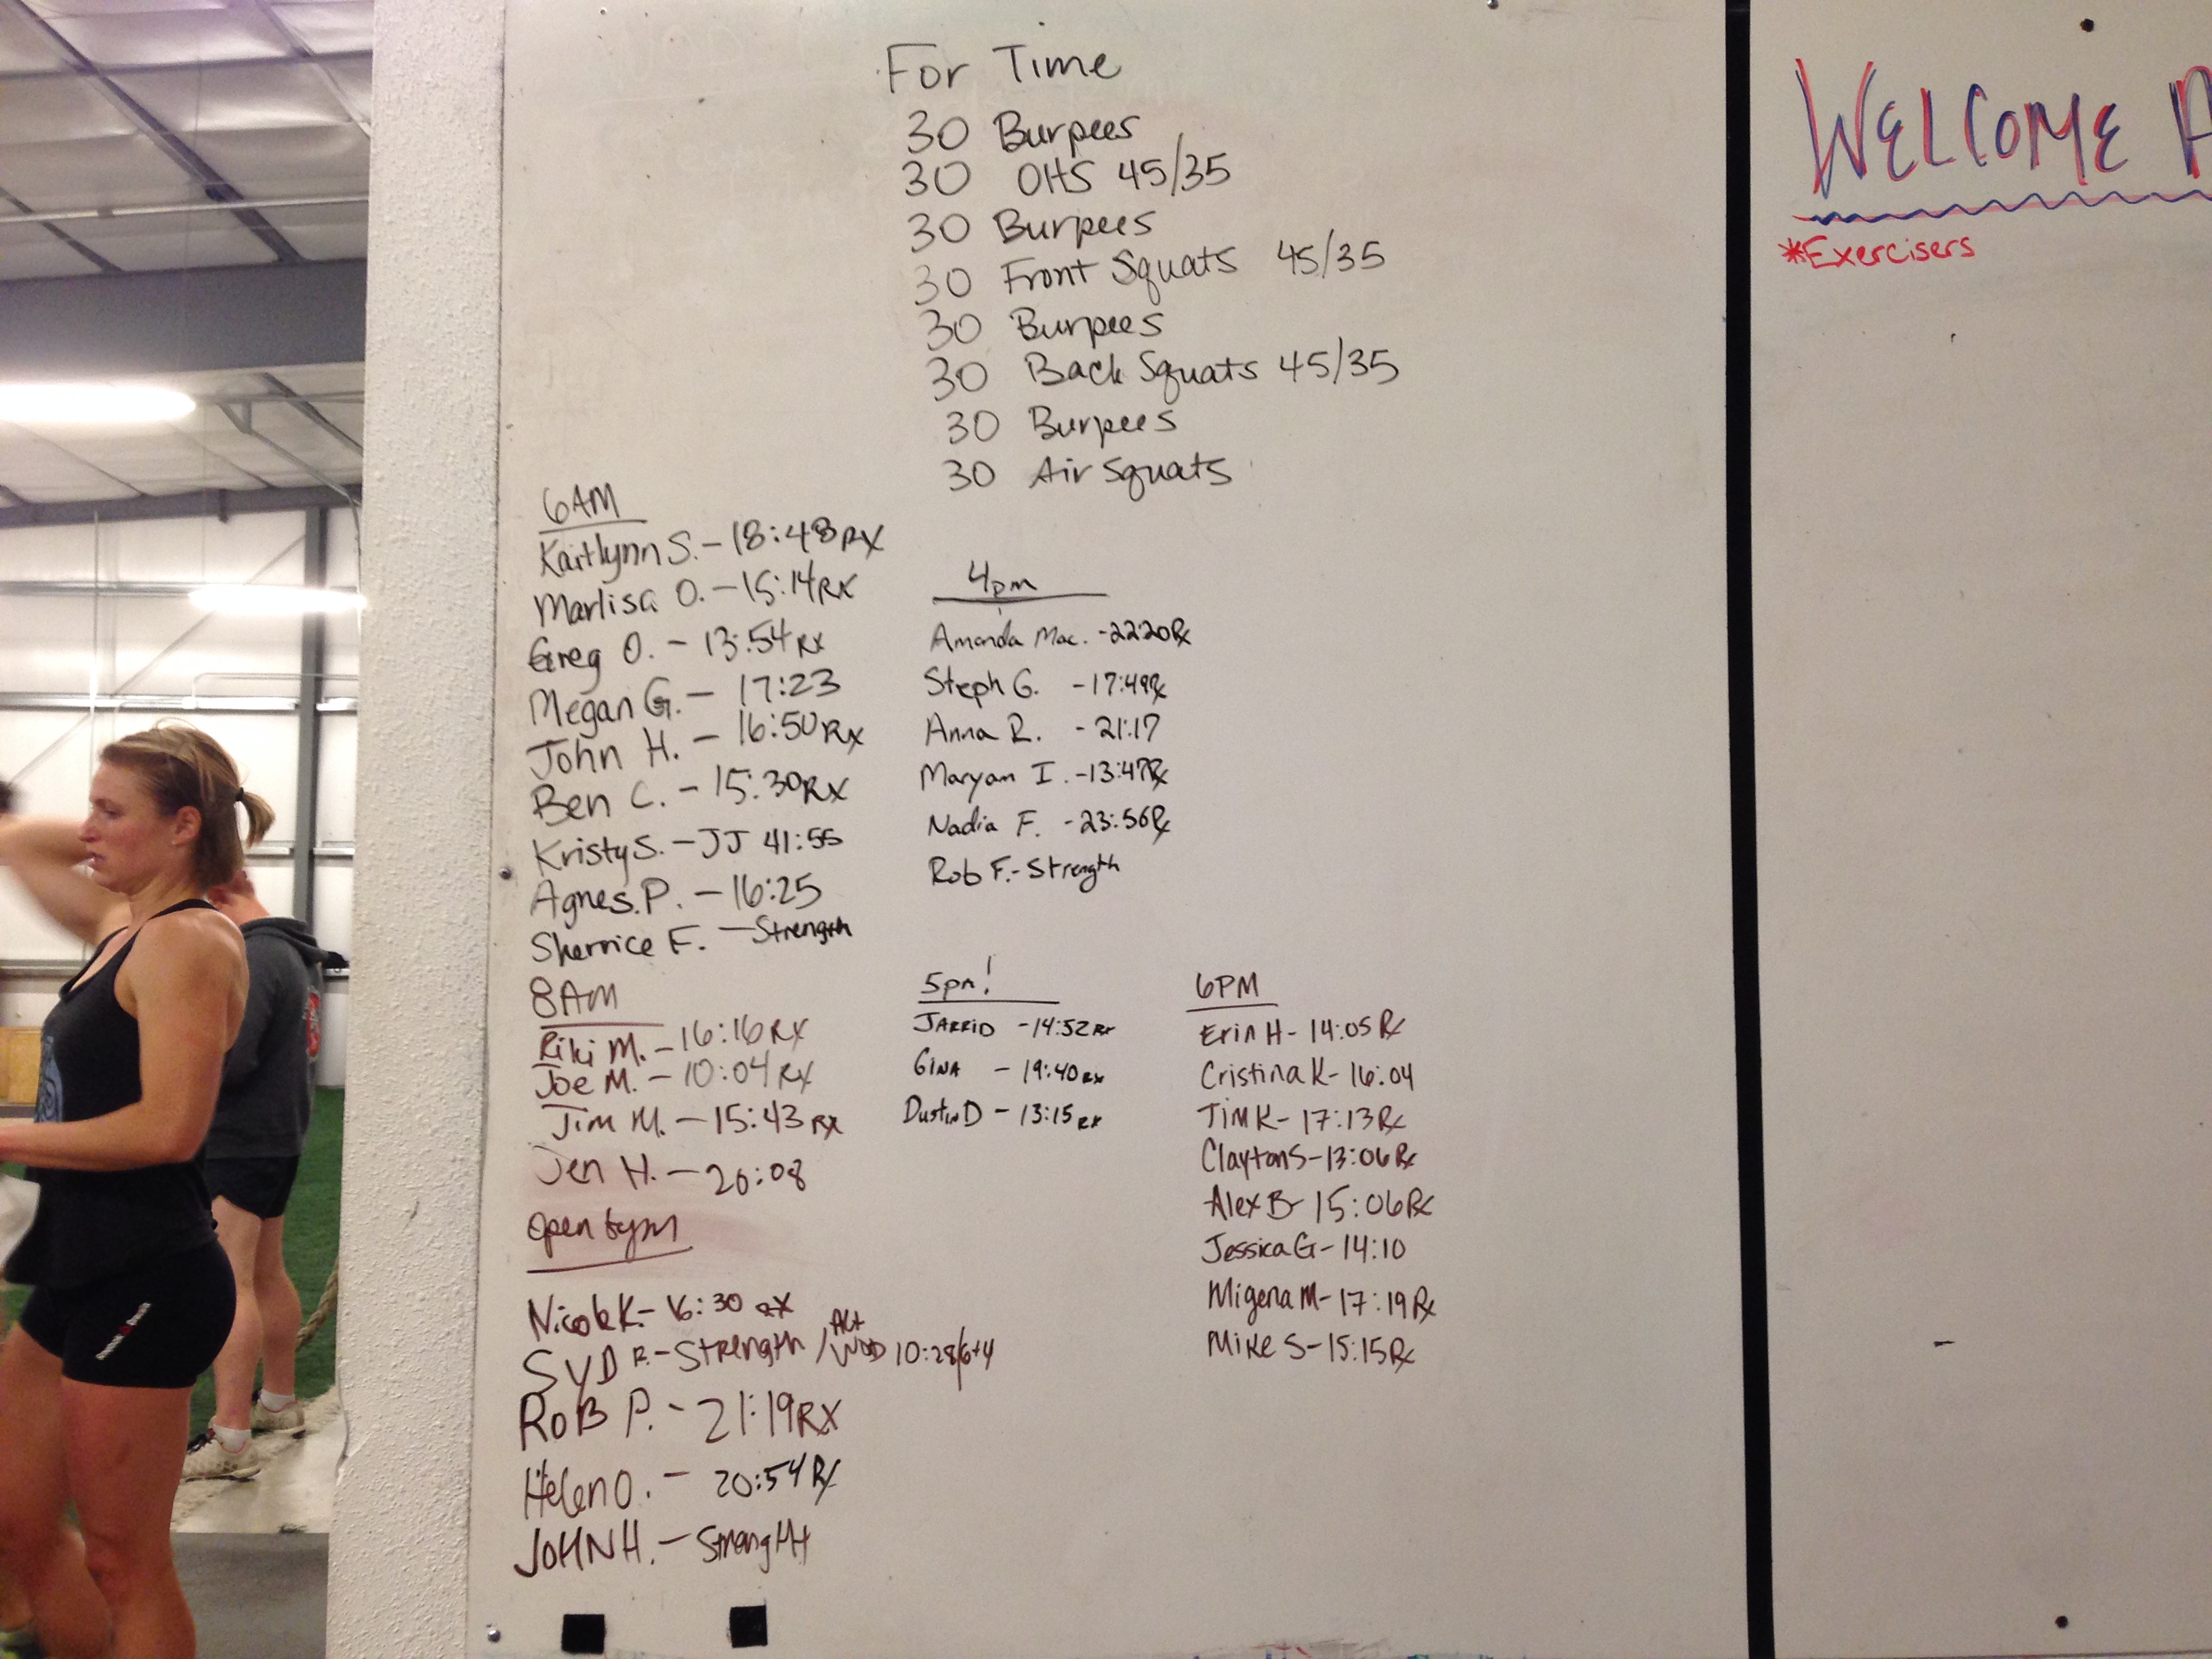 For Time
30 Burpees
30 OHS 45/35
30 Burpees
30 Front Squats 45/35
30 Burpees
30 Back Squats 45/35
30 Burpees
30 Air Squats
6AM
Kaitlynn S. - 18:48 RX
Marlisa O. - 15:14 RX
Greg O. - 13:54 RX
Megan G. - 17:23
John H. - 16:50 RX
Ben C. - 15:30 RX
Kristy S. - JJ 41:55
Agnes. P. - 16:25
Sherrice F. - Strength
8AM
Riki M. - 16:16 RX
Joe M. - 10:04 RX
Jim M. - 15:43 RX
Jen H. - 20:08
Open Gym
Nicole K. - 16:30 RX
SYD R. - Strength / Alt WOD 10:28/6+4
ROB P. - 21:19 RX
Helen O. - 20:54 Rx
JOHN H. - Strength
4pm
Amanda Mac. - 22:20 Rx
Steph G. - 17:49 Rx
Anna R. - 21:17
Maryam I. - 13:47 Rx
Nadia F. - 23:56 Rx
Rob F. - Strength
5pm!
JARRID - 14:52 RX
GINA - 19:40 RX
DUSTIN D - 13:15 RX
6PM
Erin H - 14:05 Rx
Cristina K - 16:04
Tim K - 17:13 Rx
Clayton S - 13:06 Rx
Alex B - 15:06 Rx
Jessica G - 14:10
Migena M - 17:19 Rx
Mike S - 15:15 Rx
WELCOME
*Exercisers